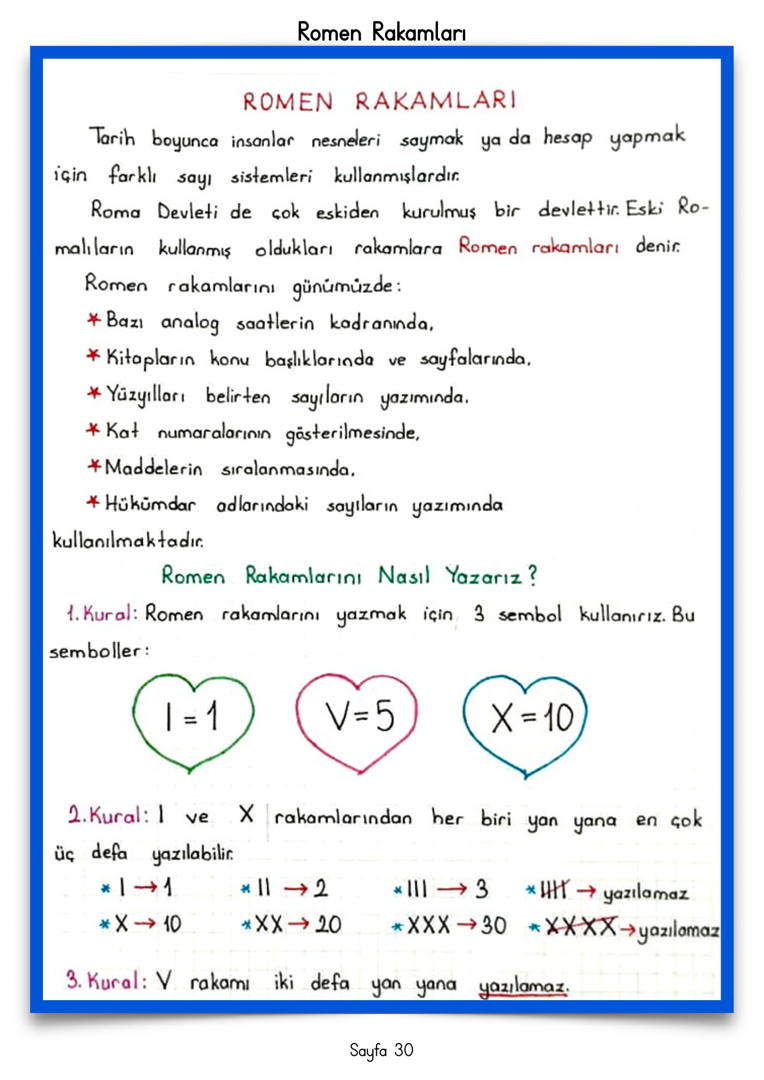 Romen Rakamları
ROMEN RAKAMLARI
Tarih boyunca insanlar nesneleri saymak ya da hesap yapmak
için farklı sayı sistemleri kullanmışlardır.
Roma Devleti de çok eskiden kurulmuş bir devlettir. Eski Ro-
malıların kullanmış oldukları rakamlara Romen rakamları denir.
Romen rakamlarını günümüzde:
* Bazı analog saatlerin kadranında,
* Kitapların konu başlıklarında ve sayfalarında,
* Yüzyılları belirten sayıların yazımında,
* Kat numaralarının gösterilmesinde,
* Maddelerin sıralanmasında,
* Hükümdar adlarındaki sayıların yazımında
kullanılmaktadır.
Romen Rakamlarını Nasıl Yazarız?
1. Kural: Romen rakamlarını yazmak için 3 sembol kullanırız. Bu
semboller:
I = 1 V = 5 X = 10
2. Kural: I ve X rakamlarından her biri yan yana en çok
üç defa yazılabilir.
* I → 1 * II → 2 * III → 3 * IIII → yazılamaz
* X → 10 * XX → 20 * XXX → 30 * XXXX → yazılamaz
3. Kural: V rakamı iki defa yan yana yazılamaz.
Sayfa 30